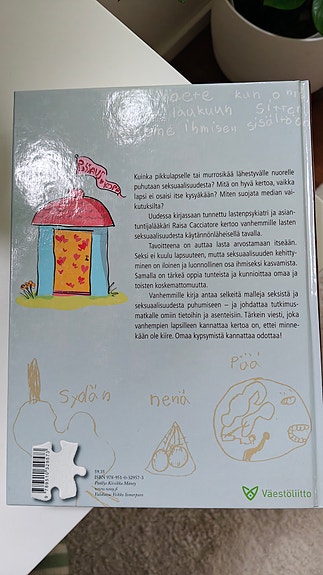 kun
laukuun
ihmisen sisältöön
Kuinka pikkulapselle tai murrosikää lähestyvälle nuorelle
puhutaan seksuaalisuudesta? Mitä on hyvä kertoa, vaikka
lapsi ei osaisi itse kysyäkään? Miten suojata median vai-
kutuksilta?
Uudessa kirjassaan tunnettu lastenpsykiatri ja asian-
tuntijalääkäri Raisa Cacciatore kertoo vanhemmille lasten
seksuaalisuudesta käytännönläheisellä tavalla.
Tavoitteena on auttaa lasta arvostamaan itseään.
Seksi ei kuulu lapsuuteen, mutta seksuaalisuuden kehitty-
minen on iloinen ja luonnollinen osa ihmiseksi kasvamista.
Samalla on tärkeä oppia tunteista ja kunnioittaa omaa ja
toisten koskemattomuutta.
Vanhemmille kirja antaa selkeitä malleja seksistä ja
seksuaalisuudesta puhumiseen – ja johdattaa tutkimus-
matkalle omiin tietoihin ja asenteisiin. Tärkein viesti, joka
vanhempien lapsilleen kannattaa kertoa on, ettei minne-
kään ole kiire. Omaa kypsymistä kannattaa odottaa!
Pää
sydän
nenä
59.35
ISBN 978-951-0-32957-3
www.wsoy.fi
Väestöliitto